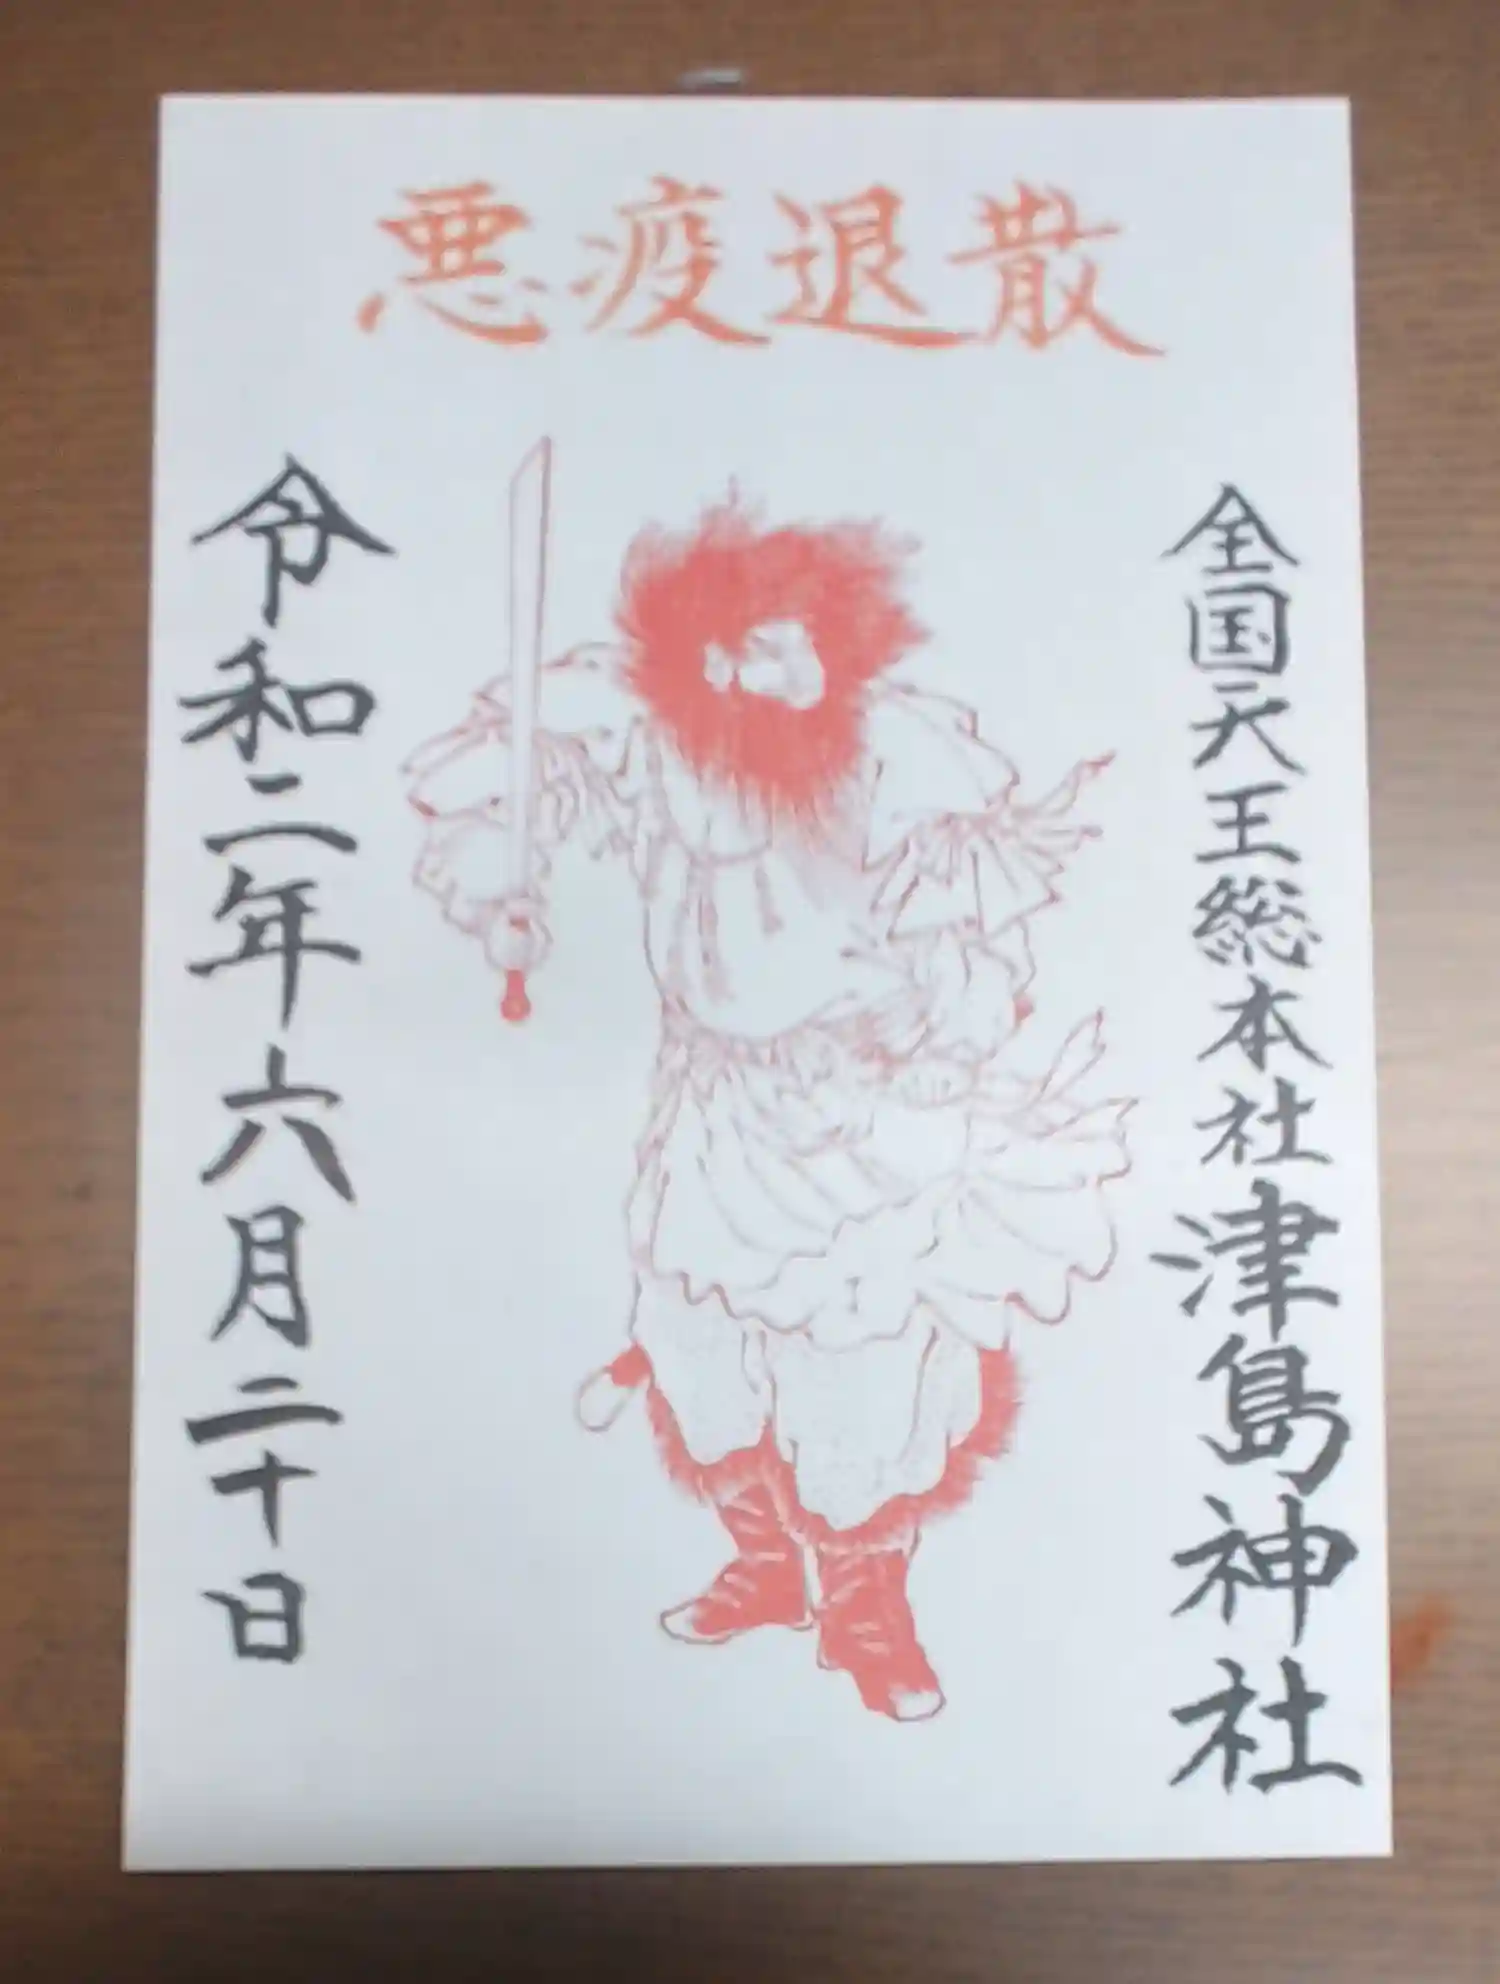 悪疫退散
全国天王総本社津島神社
令和二年六月二十日